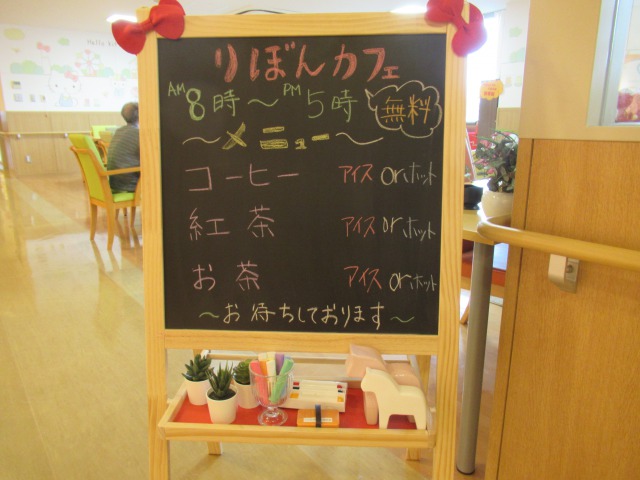 りぼんカフェ
AM 8時～PM 5時 無料
～メニュー～
コーヒー アイス or ホット
紅茶 アイス or ホット
お茶 アイス or ホット
～お待ちしております～
Hello